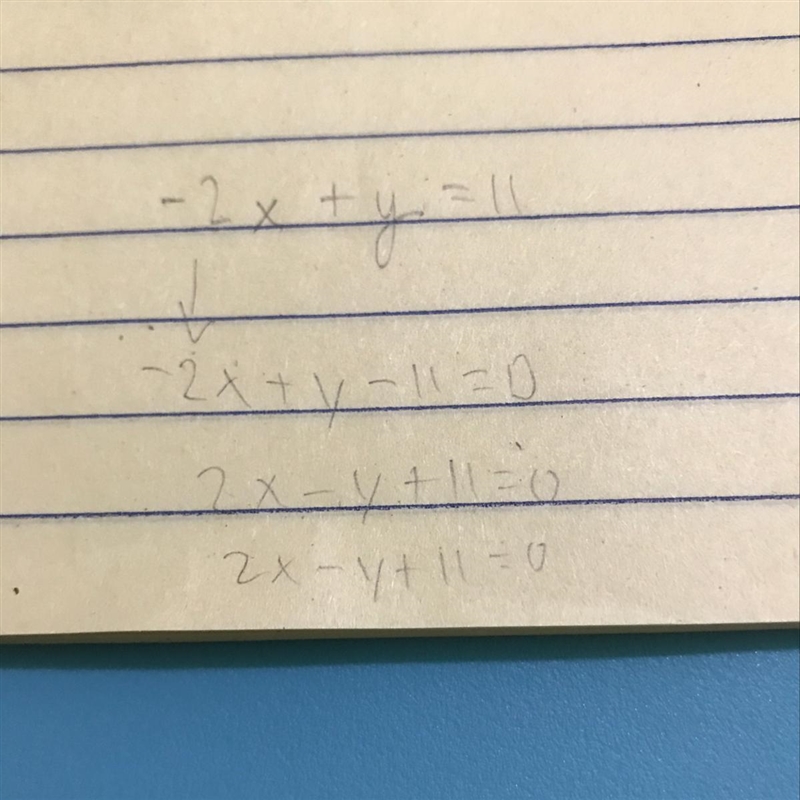 -2x + y = 11
↓
-2x + y - 11 = 0
2x - y + 11 = 0
2x - y + 11 = 0